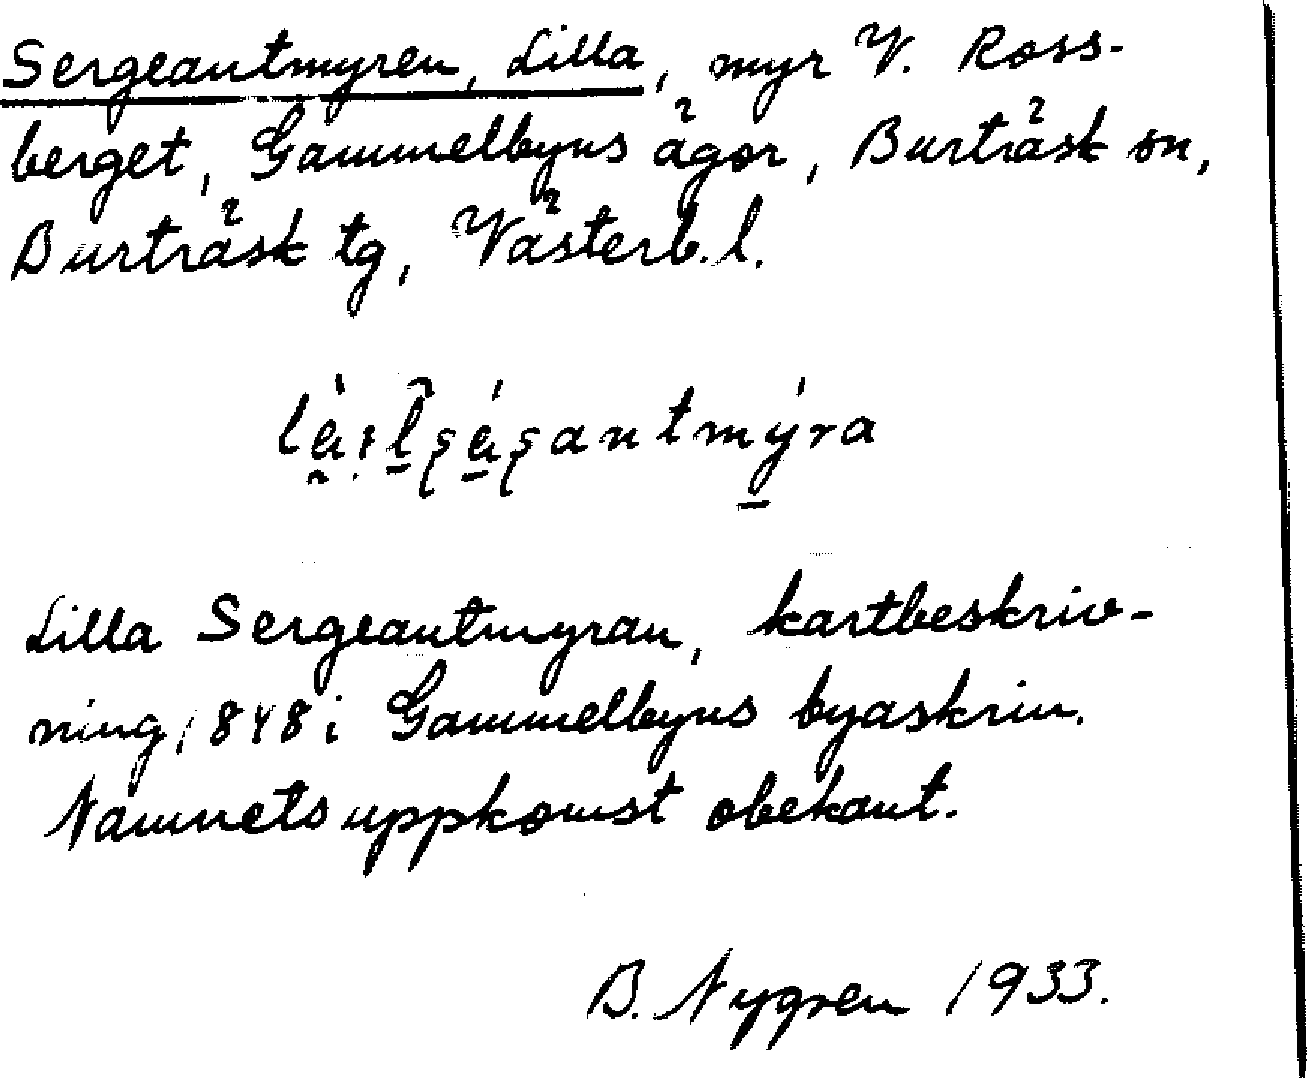 Sergeantmyren, Lilla, myr V. Ross-
berget, Gammelbyns ägor, Burträsk sn,
Burträsk tg, Västerb. l.
Lilla Sergeantmyran, kartbeskriv-
ning 1848 i Gammelbyns byaskrin.
Namnets uppkomst obekant.
B. Nygren 1933.